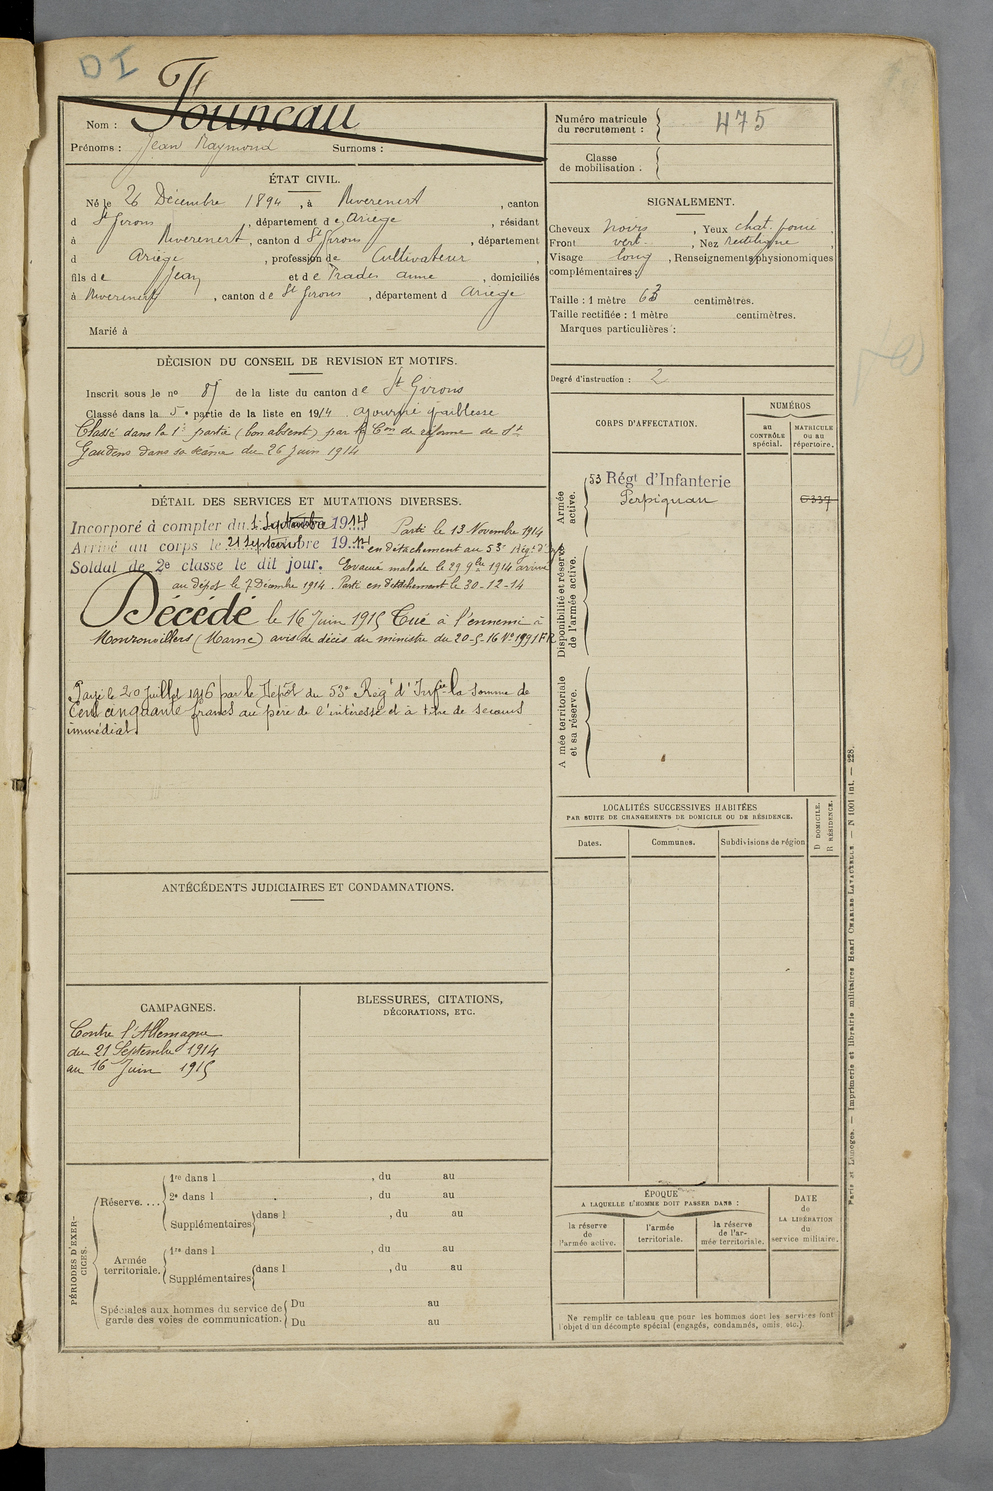 DI
Nom : Founeau
Prénoms : Jean Raymond Surnoms :
Numéro matricule du recrutement : 475
Classe de mobilisation :
ÉTAT CIVIL.
Né le 26 Décembre 1894, à Riverenert, canton
d St Girons, département de Ariège, résidant
à Riverenert, canton d St Girons, département
d Ariège, profession de Cultivateur,
fils de Jean et de Trader anne, domiciliés
à Riverenert, canton de St Girons, département d Ariège
Marié à
SIGNALEMENT.
Cheveux noirs, Yeux chat. foncé,
Front vert., Nez rectiligne,
Visage long, Renseignements physionomiques
complémentaires :
Taille : 1 mètre 63 centimètres.
Taille rectifiée : 1 mètre centimètres.
Marques particulières :
Degré d'instruction : 2
DÉCISION DU CONSEIL DE REVISION ET MOTIFS.
Inscrit sous le no 85 de la liste du canton de St Girons
Classé dans la 5e partie de la liste en 1914 ajourné faiblesse
Classé dans la 1e partie (bon absent) par la Con de réforme de St
Gaudens dans sa séance du 26 Juin 1914
DÉTAIL DES SERVICES ET MUTATIONS DIVERSES.
Incorporé à compter du 1 Septembre 1914 Parti le 13 Novembre 1914
Arrivé au corps le 21 Septembre 1914 en détachement au 53e Régt d'Inf
Soldat de 2e classe le dit jour. Evacué malade le 29 9bre 1914 arrivé
au dépôt le 7 Décembre 1914. Parti en détachement le 30-12-14
Décédé le 16 Juin 1915 Tué à l'ennemi à
(Marne) avis de décès du ministre du 20-5-16 No
Payé le 20 Juillet 1916 par le Dépôt du 53e Régt d'Infie la somme de
Cent cinquante francs au père de l'intéressé et à titre de secours
immédiat
CORPS D'AFFECTATION.
NUMÉROS
au CONTRÔLE spécial.
MATRICULE ou au répertoire.
Armée active.
53 Régt d'Infanterie
Perpignan
6337
Disponibilité et réserve de l'armée active.
Armée territoriale et sa réserve.
LOCALITÉS SUCCESSIVES HABITÉES
PAR SUITE DE CHANGEMENTS DE DOMICILE OU DE RÉSIDENCE.
Dates. Communes. Subdivisions de région
D DOMICILE.
R RÉSIDENCE.
ANTÉCÉDENTS JUDICIAIRES ET CONDAMNATIONS.
CAMPAGNES.
Contre l'Allemagne
du 21 Septembre 1914
au 16 Juin 1915
BLESSURES, CITATIONS,
DÉCORATIONS, ETC.
PÉRIODES D'EXERCICES.
Réserve....
1re dans l , du au
2e dans l , du au
Supplémentaires dans l , du au
Armée territoriale.
1re dans l , du au
Supplémentaires dans l , du au
Spéciales aux hommes du service de
garde des voies de communication.
Du au
Du au
ÉPOQUE
A LAQUELLE L'HOMME DOIT PASSER DANS :
la réserve de l'armée active.
l'armée territoriale.
la réserve de l'armée territoriale.
DATE de LA LIBÉRATION du service militaire.
Ne remplir ce tableau que pour les hommes dont les services font
l'objet d'un décompte spécial (engagés, condamnés, omis, etc.).
Paris et Limoges. — Imprimerie et librairie militaires Henri CHARLES-LAVAUZELLE. — N 1001 int. — 228.